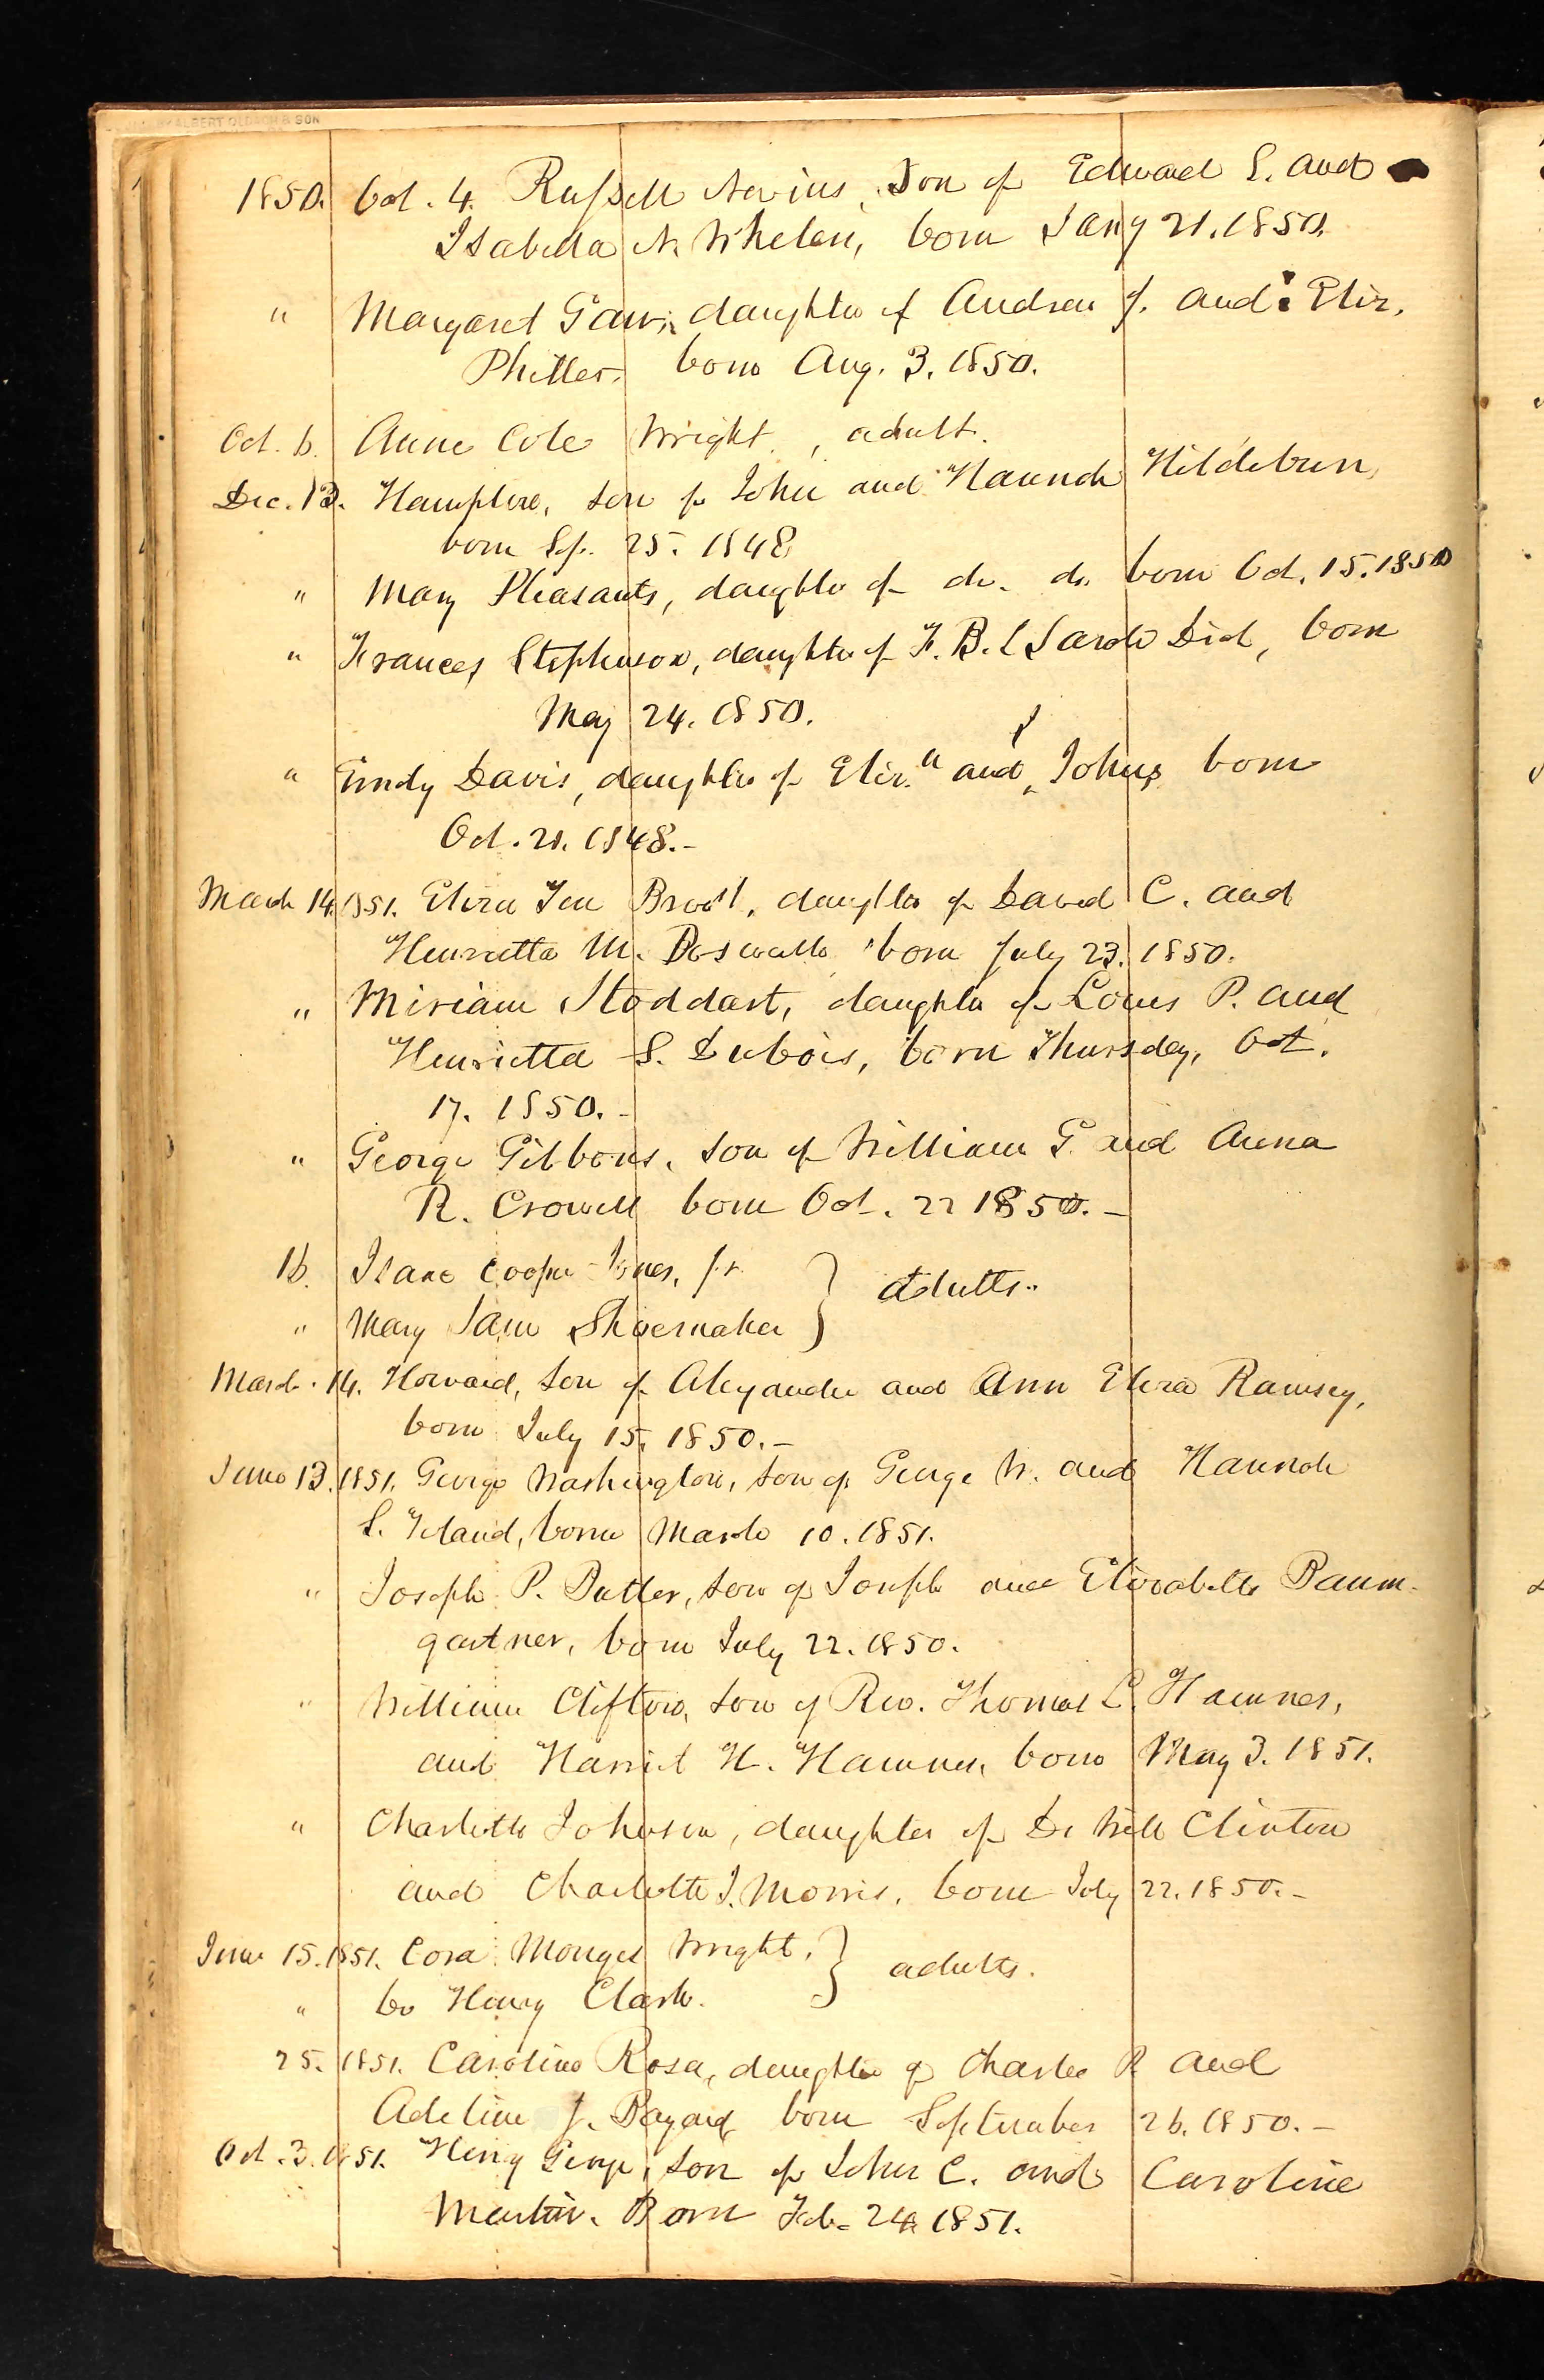 ALBERT OLDACH & SON
1850. Oct. 4. Russell Nevins, Son of Edward S. and
Isabella N. Whelen, born Jany 21. 1850.
" Margaret Gaw, daughter of Andrew J. and Eliz.
Philler, born Aug. 3. 1850.
Oct. 6. Anne Cole Wright, adult.
Dec. 13. Hampton, son of John and Hannah Hildeburn,
born Sep. 25. 1848
" Mary Pleasants, daughter of do. do. born Oct. 15. 1850
" Frances Stephenson, daughter of F. B. & Sarah Dick, born
May 24. 1850.
" Davis, daughter of Eliz.a and Johns, born
Oct. 21. 1848.-
March 14. 1851. Eliza Ten Broeck, daughter of David C. and
Henrietta M. born July 23. 1850.
" Miriam Stoddart, daughter of Louis P. and
Henrietta S. Dubois, born Thursday, Oct.
17. 1850.-
" George Gibbons, son of William G. and Anna
R. Crowell born Oct. 22 1850.-
16. Isaac Cooper Jones, Jr.
" Mary Jane Shoemaker } adults.
March. 14. Howard, son of Alexander and Ann Eliza Ramsey,
born July 15. 1850.-
June 13. 1851. George Washington, son of George W. and Hannah
S. born March 10. 1851.
" Joseph P. Butler, son of Joseph and Elizabeth Baum-
gartner, born July 22. 1850.
" William Clifton, son of Rev. Thomas L. Hamner,
and Harriet H. Hamner, born May 3. 1851.
" Charlotte Johnson, daughter of De Witt Clinton
and Charlotte J. Morris, born July 22. 1850.-
June 15. 1851. Cora Monges Wright,
" Henry Clark. } adults.
25. 1851. Caroline Rosa, daughter of Charles P. and
Adeline J. Bayard born September 26. 1850.-
Oct. 3. 1851. Henry George, son of John C. and Caroline
Martin. Born Feb. 24 1851.